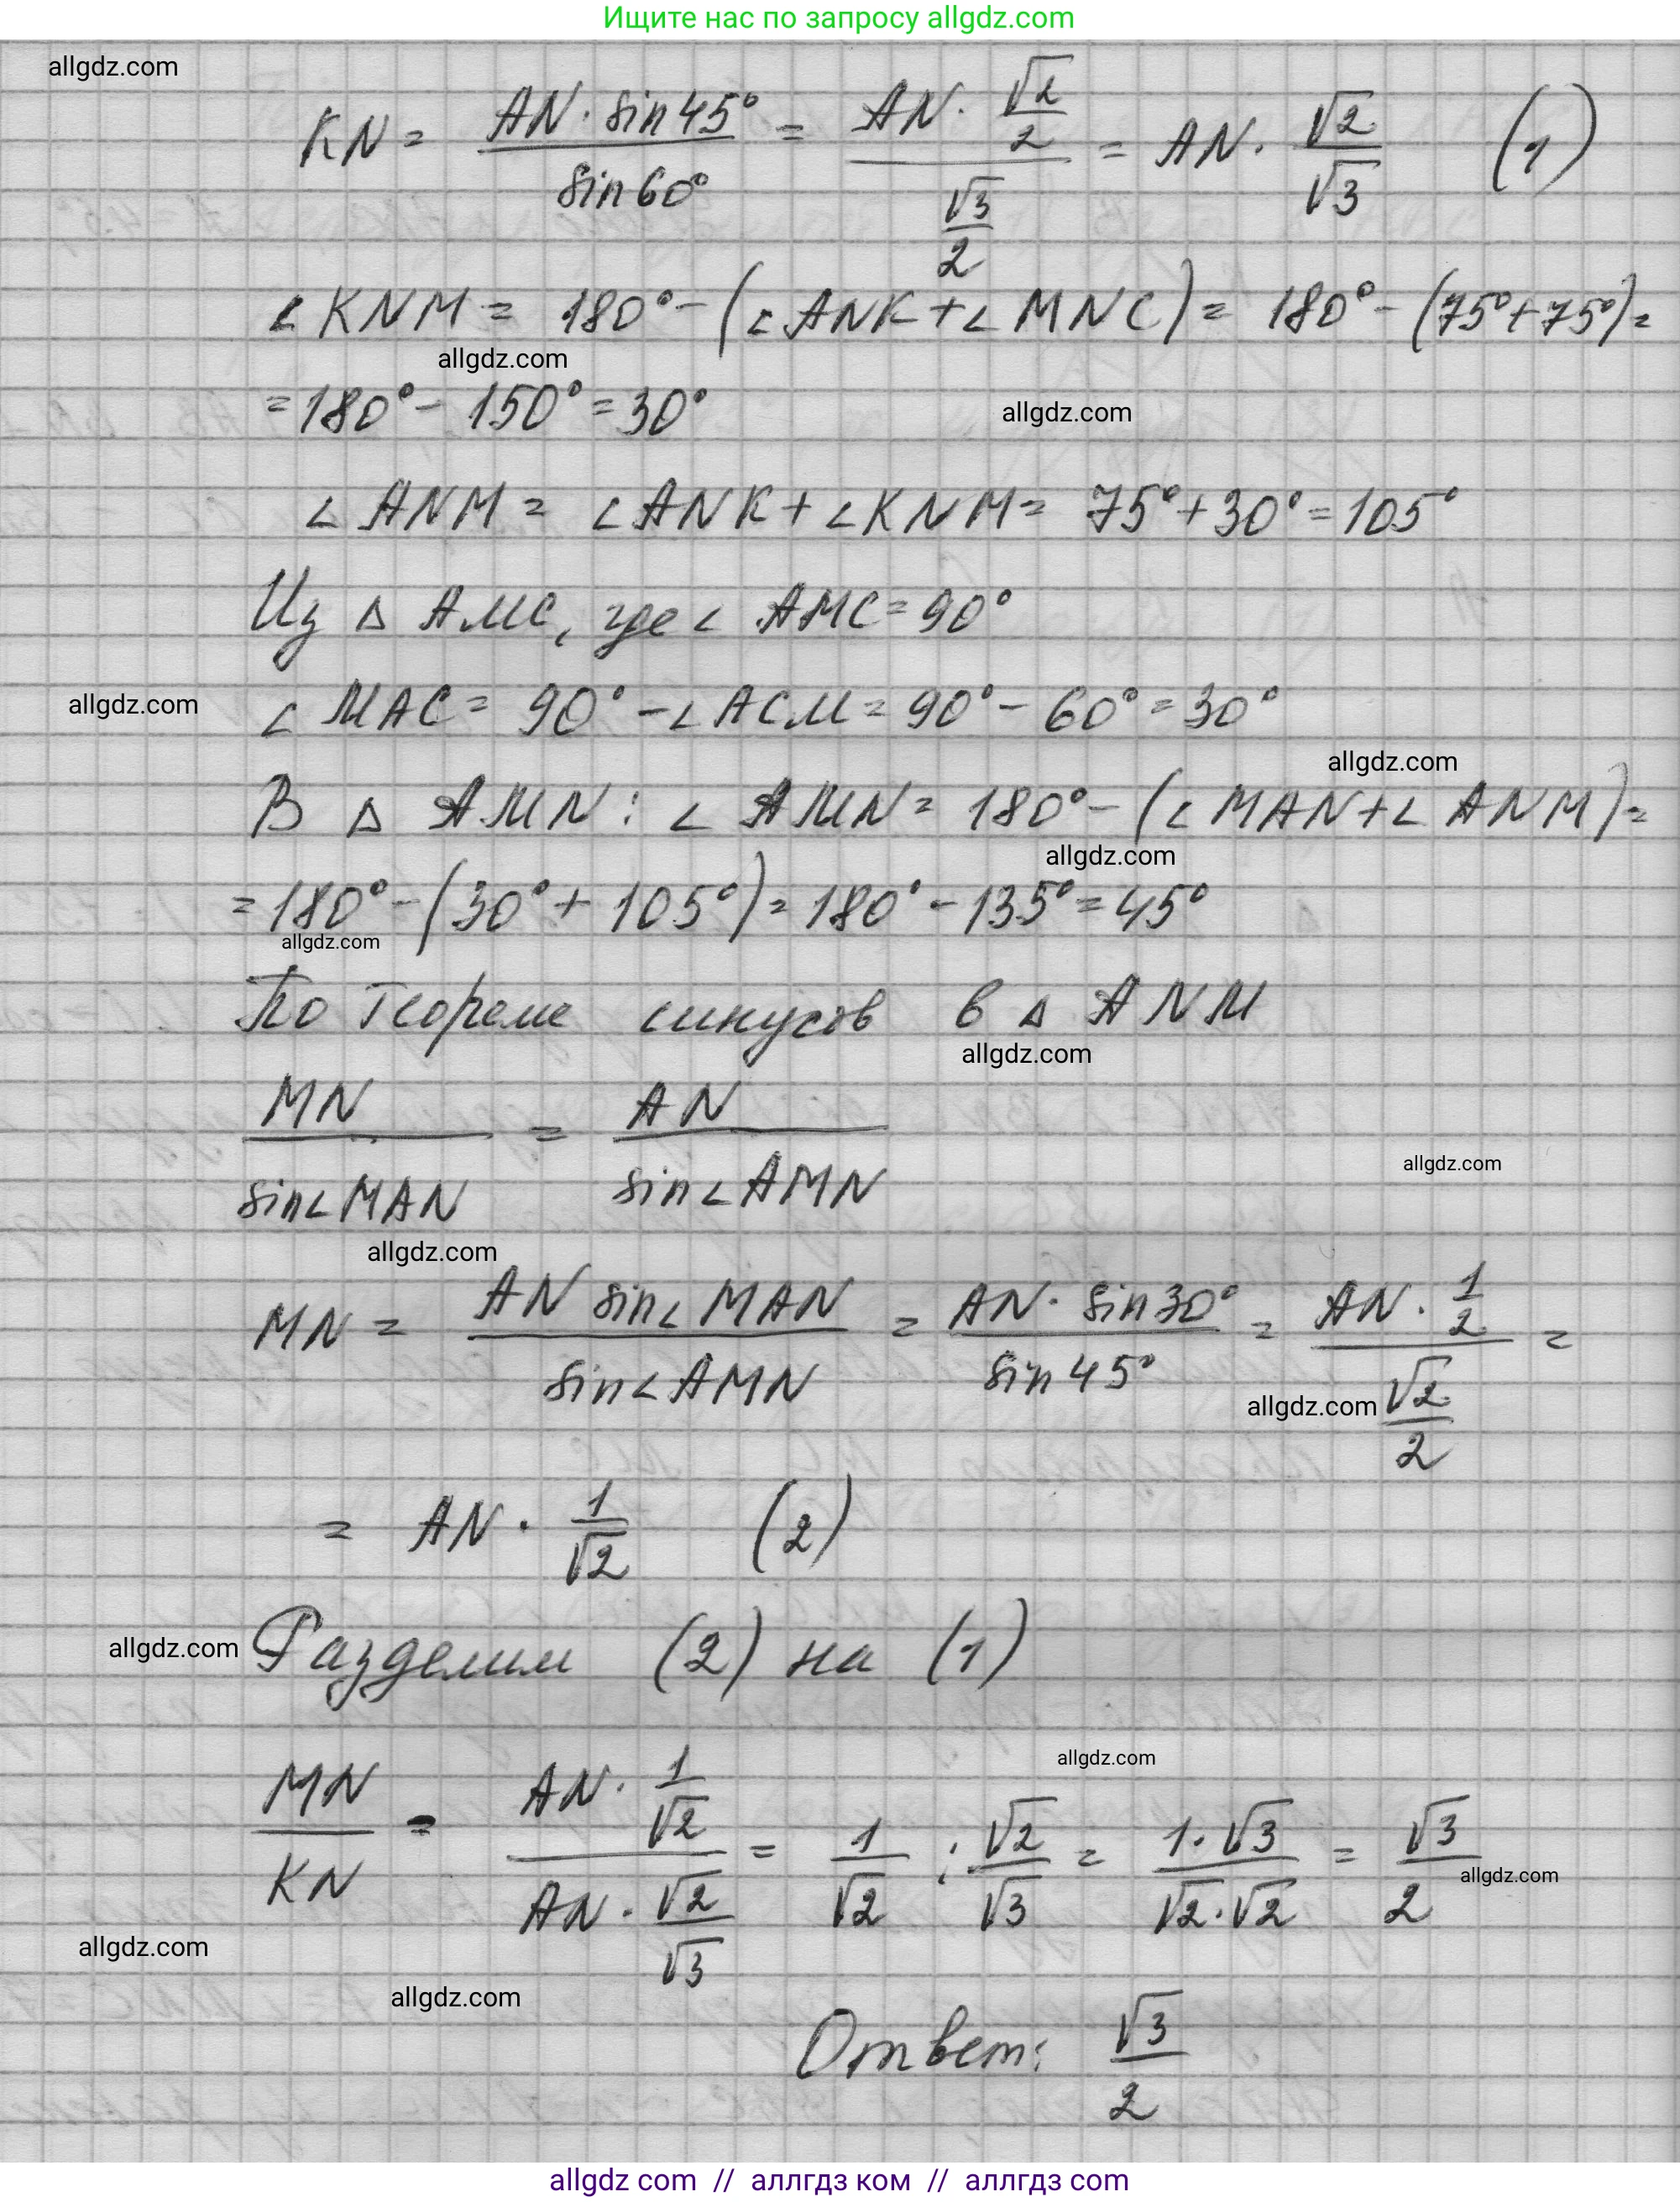 Ищите нас по запросу allgdz.com
allgdz.com
KN = AN · sin 45° / sin 60° = AN · √2/2 / √3/2 = AN · √2/√3 (1)
∠KNM = 180° - (∠ANK + ∠MNC) = 180° - (75° + 75°) =
allgdz.com
= 180° - 150° = 30°
allgdz.com
∠ANM = ∠ANK + ∠KNM = 75° + 30° = 105°
Из △ AMC, где ∠ AMC = 90°
allgdz.com
∠ MAC = 90° - ∠ACM = 90° - 60° = 30°
allgdz.com
В △ AMN : ∠ AMN = 180° - (∠ MAN + ∠ ANM) =
allgdz.com
= 180° - (30° + 105°) = 180° - 135° = 45°
allgdz.com
По теореме синусов в △ ANM
allgdz.com
MN / sin∠MAN = AN / sin∠AMN
allgdz.com
allgdz.com
MN = AN sin∠MAN / sin∠AMN = AN · sin 30° / sin 45° = AN · 1/2 / √2/2 =
allgdz.com
= AN · 1/√2 (2)
allgdz.com
Разделим (2) на (1)
allgdz.com
MN/KN = AN · 1/√2 / AN · √2/√3 = 1/√2 : √2/√3 = 1·√3 / √2·√2 = √3/2
allgdz.com
allgdz.com
allgdz.com
Ответ: √3/2
allgdz com // аллгдз ком // аллгдз com